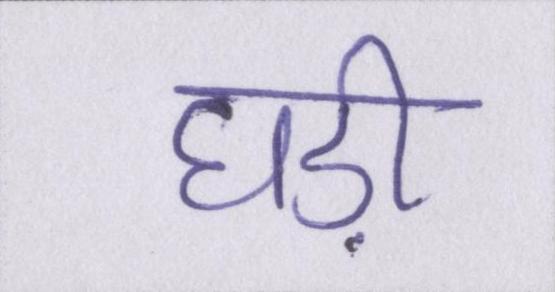 घड़ी